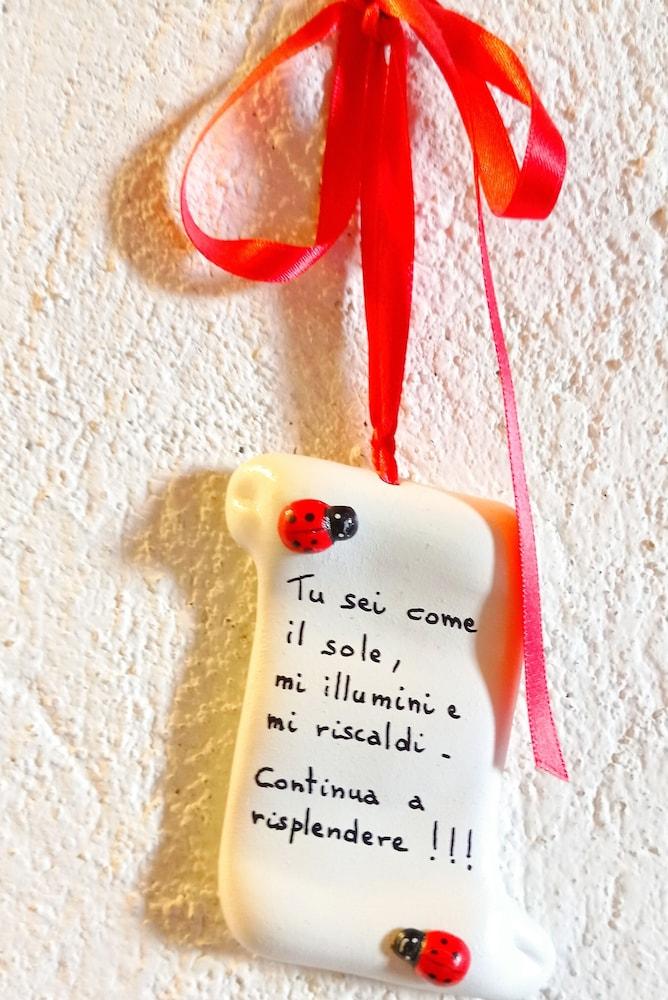 Tu sei come
il sole,
mi illumini e
mi riscaldi -
Continua a
risplendere !!!